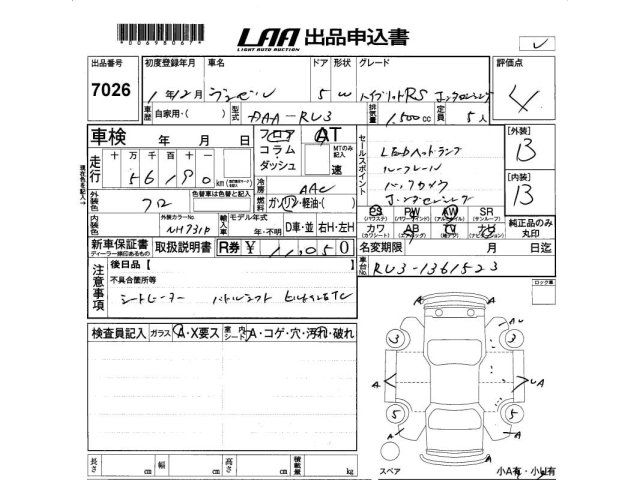 *00698067*
LAA 出品申込書
LIGHT AUTO AUCTION
出品番号 初度登録年月 車名 ドア 形状 グレード 評価点
7026 1年12月 5 W ハイブリットRS ホンダセンシング 4
車歴 自家用・( ) 型式 DAA-RU3 排気量 1,500cc 定員 5人
車検 年 月 日 フロア AT セールスポイント [外装]
十 万 千 百 十 コラム MTのみ記入 LEDヘッドランプ B
走行 5 6 1 9 0 km ダッシュ 速 ルーフレール
現在色を記入→ 冷房 AAC バックカメラ [内装]
外装色 クロ 色替車は色替と記入 燃料 ガソリン・軽油・( ) ホンダセンシング B
内装色 外装カラーNo. NH731P 輸入車 モデル年式 年・不明 D車・並 右H・左H
PS PW AW SR 純正品のみ丸印
(パワステ) (パワーウインド) (サンルーフ)
カワ AB TV ナビ
新車保証書 取扱説明書 R券 ¥ 11,050 名変期限 月 日迄
ディーラー様印あるもの
車台No. RU3-1361523
注意事項 後日品 [
不具合箇所等 ロック車
シートヒーター パドルシフト ビルトインETC
検査員記入 ガラス A・X要ス 室内 シート A・コゲ・穴・汚れ・破れ
A U
3 3
A A
5 5
A A
長さ cm 幅 cm 高さ cm 積載量 kg スペア 小A有・小U有